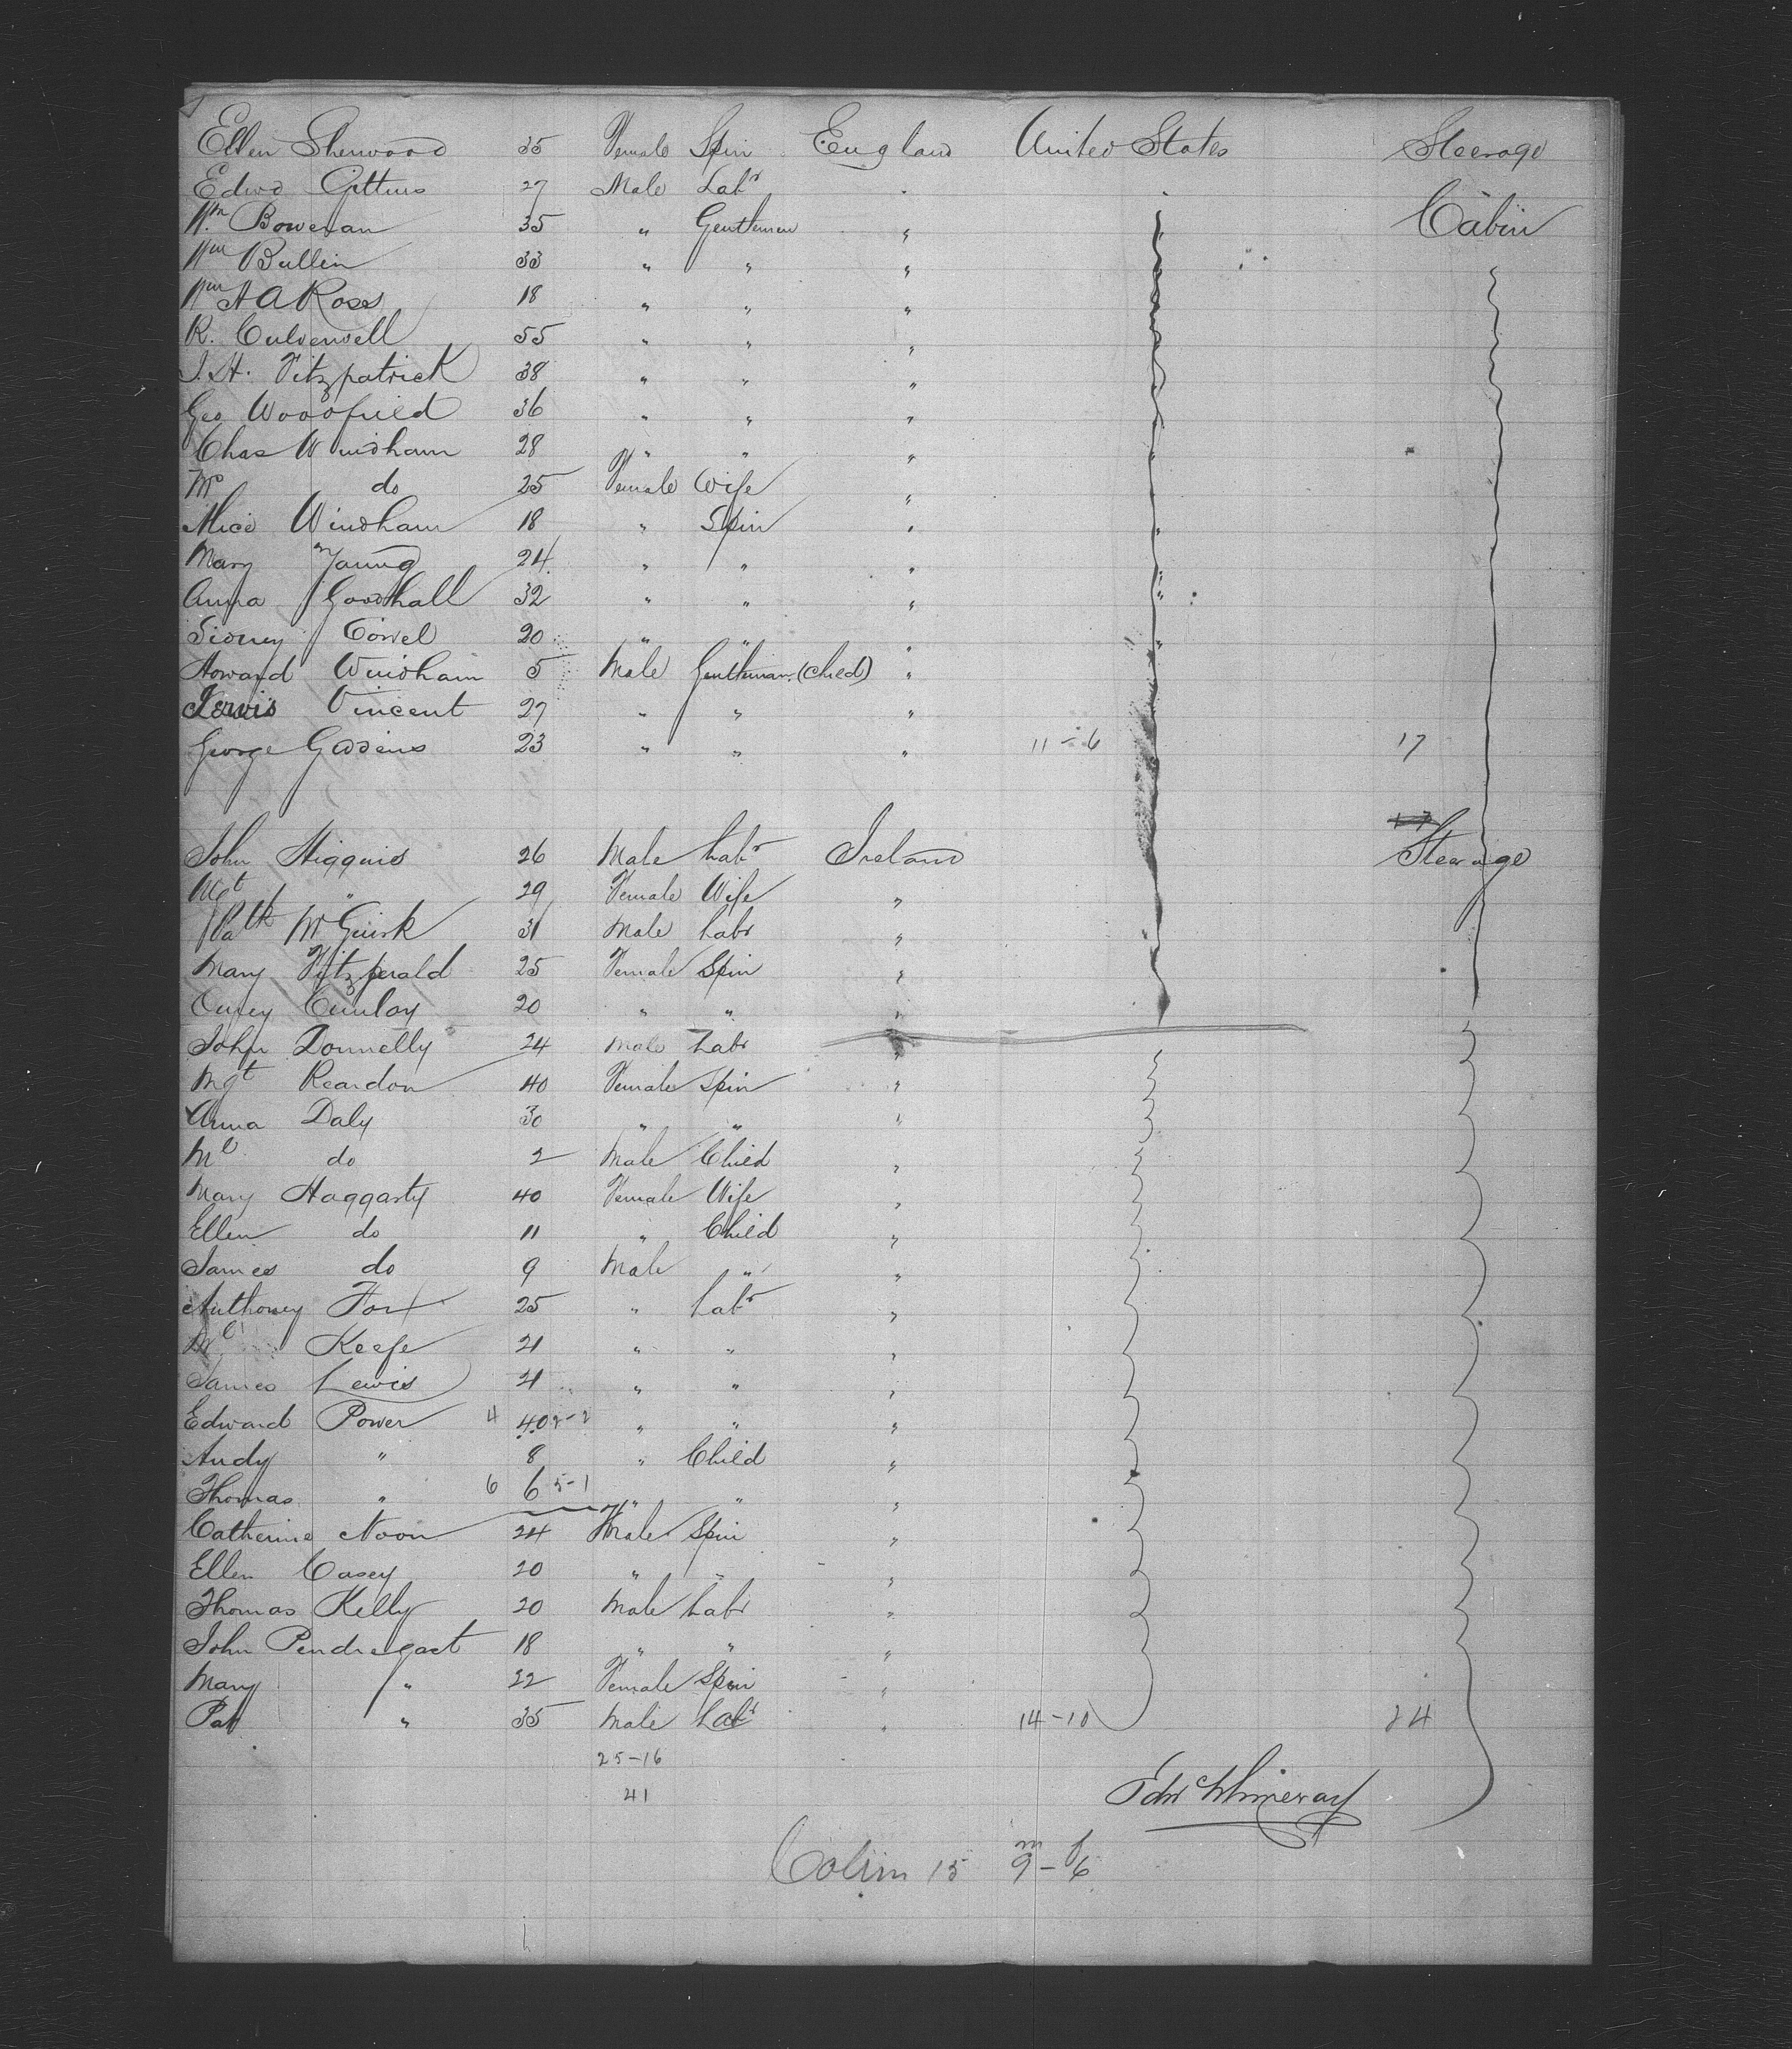 Ellen Sherwood 35 Female Spin England United States Steerage
Edwd Gittins 27 Male Labr "
Wm Bowenan 35 " Gentleman " " Cabin
Wm Bullen 33 " " "
Wm H A Ross 18 " " "
R. Culverwell 55 " " "
J. H. Fitzpatrick 38 " " "
Geo Woodfield 36 " " "
Chas Windham 28 " " "
Mrs do 25 Female Wife "
Alice Windham 18 " Spin "
Mary Young 24 " " "
Anna Goodhall 32 " " "
Sidney Cowel 20 " " "
Howard Windham 5 Male Gentleman (Child) "
Jervis Vincent 27 " " "
George Giddens 23 " " " 11-6 17
17
John Higgins 26 Male Labr Ireland Steerage
Mgt " 29 Female Wife "
Patk McGuirk 31 Male Labr "
Mary Fitzgerald 25 Female Spin "
Conlay 20 " " "
John Donnelly 24 Male Labr "
Mgt Reardon 40 Female Spin "
Anna Daly 30 " " "
Ml do 2 Male Child "
Mary Haggarty 40 Female Wife "
Ellen do 11 " Child "
James do 9 Male " "
Anthoney Fox 25 " Labr "
Keefe 21 " " "
James Lewis 21 " " "
Edward Power 4 40 2-2 " " "
Andy " 8 " Child "
Thomas " 6 6 5-1 " " "
Catherine Noon 24 Female Spin "
Ellen Casey 20 " " "
Thomas Kelly 20 Male Labr "
John Pendregast 18 " " "
Mary " 22 Female Spin "
Pat " 35 Male Labr " 14-10 24
25-16
41
Edw
Cabin 15 m 9 - f 6